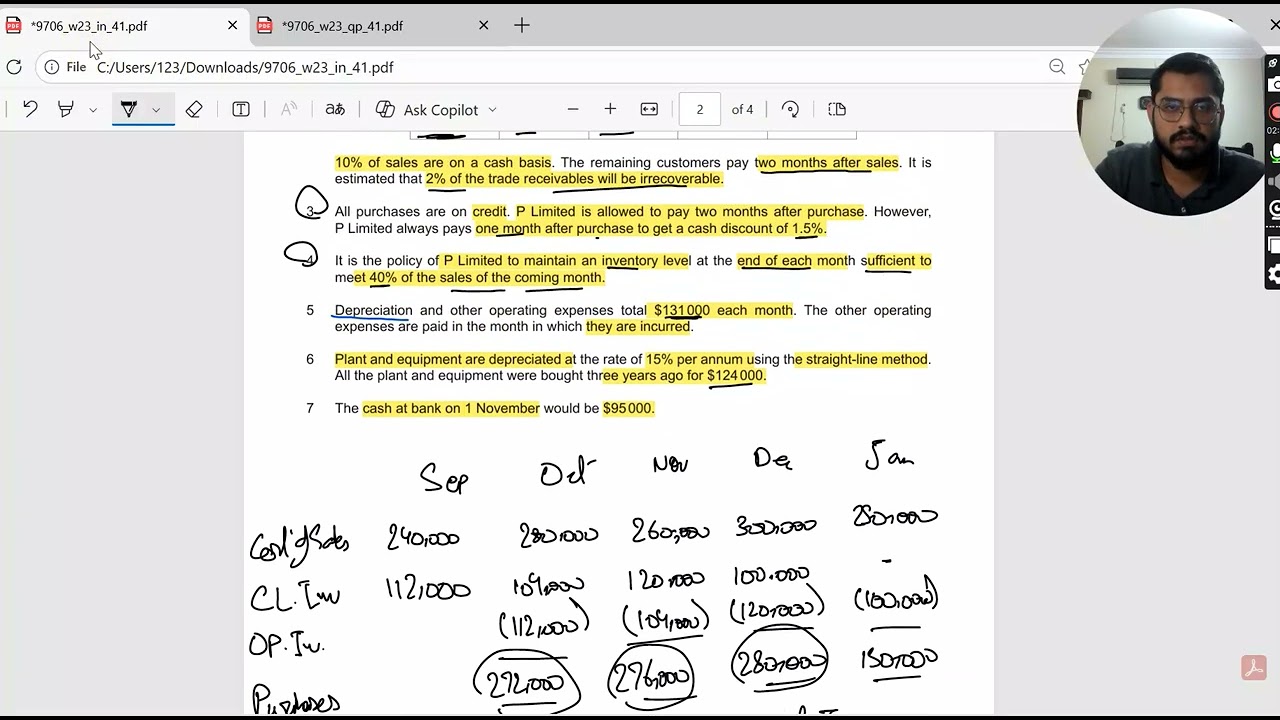 *9706_w23_in_41.pdf
*9706_w23_qp_41.pdf
File C:/Users/123/Downloads/9706_w23_in_41.pdf
Ask Copilot
2 of 4
10% of sales are on a cash basis. The remaining customers pay two months after sales. It is
estimated that 2% of the trade receivables will be irrecoverable.
3 All purchases are on credit. P Limited is allowed to pay two months after purchase. However,
P Limited always pays one month after purchase to get a cash discount of 1.5%.
4 It is the policy of P Limited to maintain an inventory level at the end of each month sufficient to
meet 40% of the sales of the coming month.
5 Depreciation and other operating expenses total $131 000 each month. The other operating
expenses are paid in the month in which they are incurred.
6 Plant and equipment are depreciated at the rate of 15% per annum using the straight-line method.
All the plant and equipment were bought three years ago for $124 000.
7 The cash at bank on 1 November would be $95 000.
Sep Oct Nov Dec Jan
Cost of Sales 240,000 280,000 260,000 300,000 250,000
CL. Inv 112,000 104,000 120,000 100,000 -
OP. Inv. (112,000) (104,000) (120,000) (100,000)
Purchases 272,000 276,000 280,000 150,000